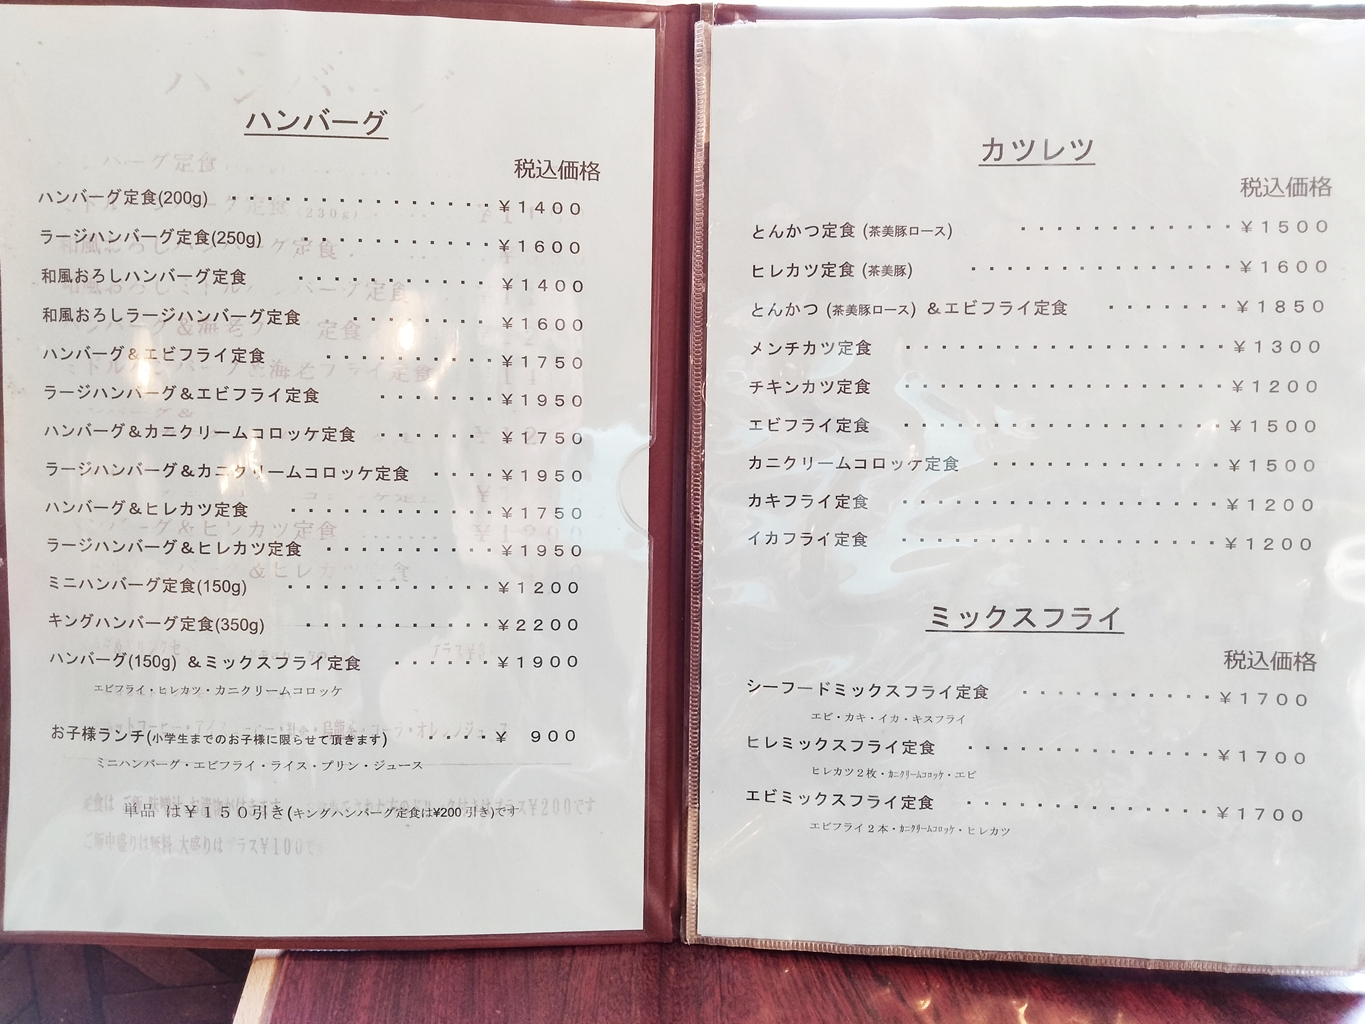 ハンバーグ
税込価格
ハンバーグ定食(200g) ・・・・・・・・・・・・・・・¥１４００
ラージハンバーグ定食(250g) ・・・・・・・・・・・・¥１６００
和風おろしハンバーグ定食 ・・・・・・・・・・・¥１４００
和風おろしラージハンバーグ定食 ・・・・・・・・¥１６００
ハンバーグ＆エビフライ定食 ・・・・・・・・・・¥１７５０
ラージハンバーグ＆エビフライ定食 ・・・・・・・¥１９５０
ハンバーグ＆カニクリームコロッケ定食 ・・・・・・¥１７５０
ラージハンバーグ＆カニクリームコロッケ定食 ・・・・¥１９５０
ハンバーグ＆ヒレカツ定食 ・・・・・・・・・・・¥１７５０
ラージハンバーグ＆ヒレカツ定食 ・・・・・・・・・¥１９５０
ミニハンバーグ定食(150g) ・・・・・・・・・・・¥１２００
キングハンバーグ定食(350g) ・・・・・・・・・・¥２２００
ハンバーグ(150g) ＆ミックスフライ定食 ・・・・・・¥１９００
エビフライ・ヒレカツ・カニクリームコロッケ
お子様ランチ(小学生までのお子様に限らせて頂きます) ・・・・¥ ９００
ミニハンバーグ・エビフライ・ライス・プリン・ジュース
単品 は¥１５０引き(キングハンバーグ定食は¥200引き)です
カツレツ
税込価格
とんかつ定食 (茶美豚ロース) ・・・・・・・・・・・・¥１５００
ヒレカツ定食 (茶美豚) ・・・・・・・・・・・・・・¥１６００
とんかつ (茶美豚ロース) ＆エビフライ定食 ・・・・・・・¥１８５０
メンチカツ定食 ・・・・・・・・・・・・・・・・・¥１３００
チキンカツ定食 ・・・・・・・・・・・・・・・・・¥１２００
エビフライ定食 ・・・・・・・・・・・・・・・・・¥１５００
カニクリームコロッケ定食 ・・・・・・・・・・・・・¥１５００
カキフライ定食 ・・・・・・・・・・・・・・・・・¥１２００
イカフライ定食 ・・・・・・・・・・・・・・・・・¥１２００
ミックスフライ
税込価格
シーフードミックスフライ定食 ・・・・・・・・・・・¥１７００
エビ・カキ・イカ・キスフライ
ヒレミックスフライ定食 ・・・・・・・・・・・・・・¥１７００
ヒレカツ２枚・カニクリームコロッケ・エビ
エビミックスフライ定食 ・・・・・・・・・・・・・・¥１７００
エビフライ２本・カニクリームコロッケ・ヒレカツ